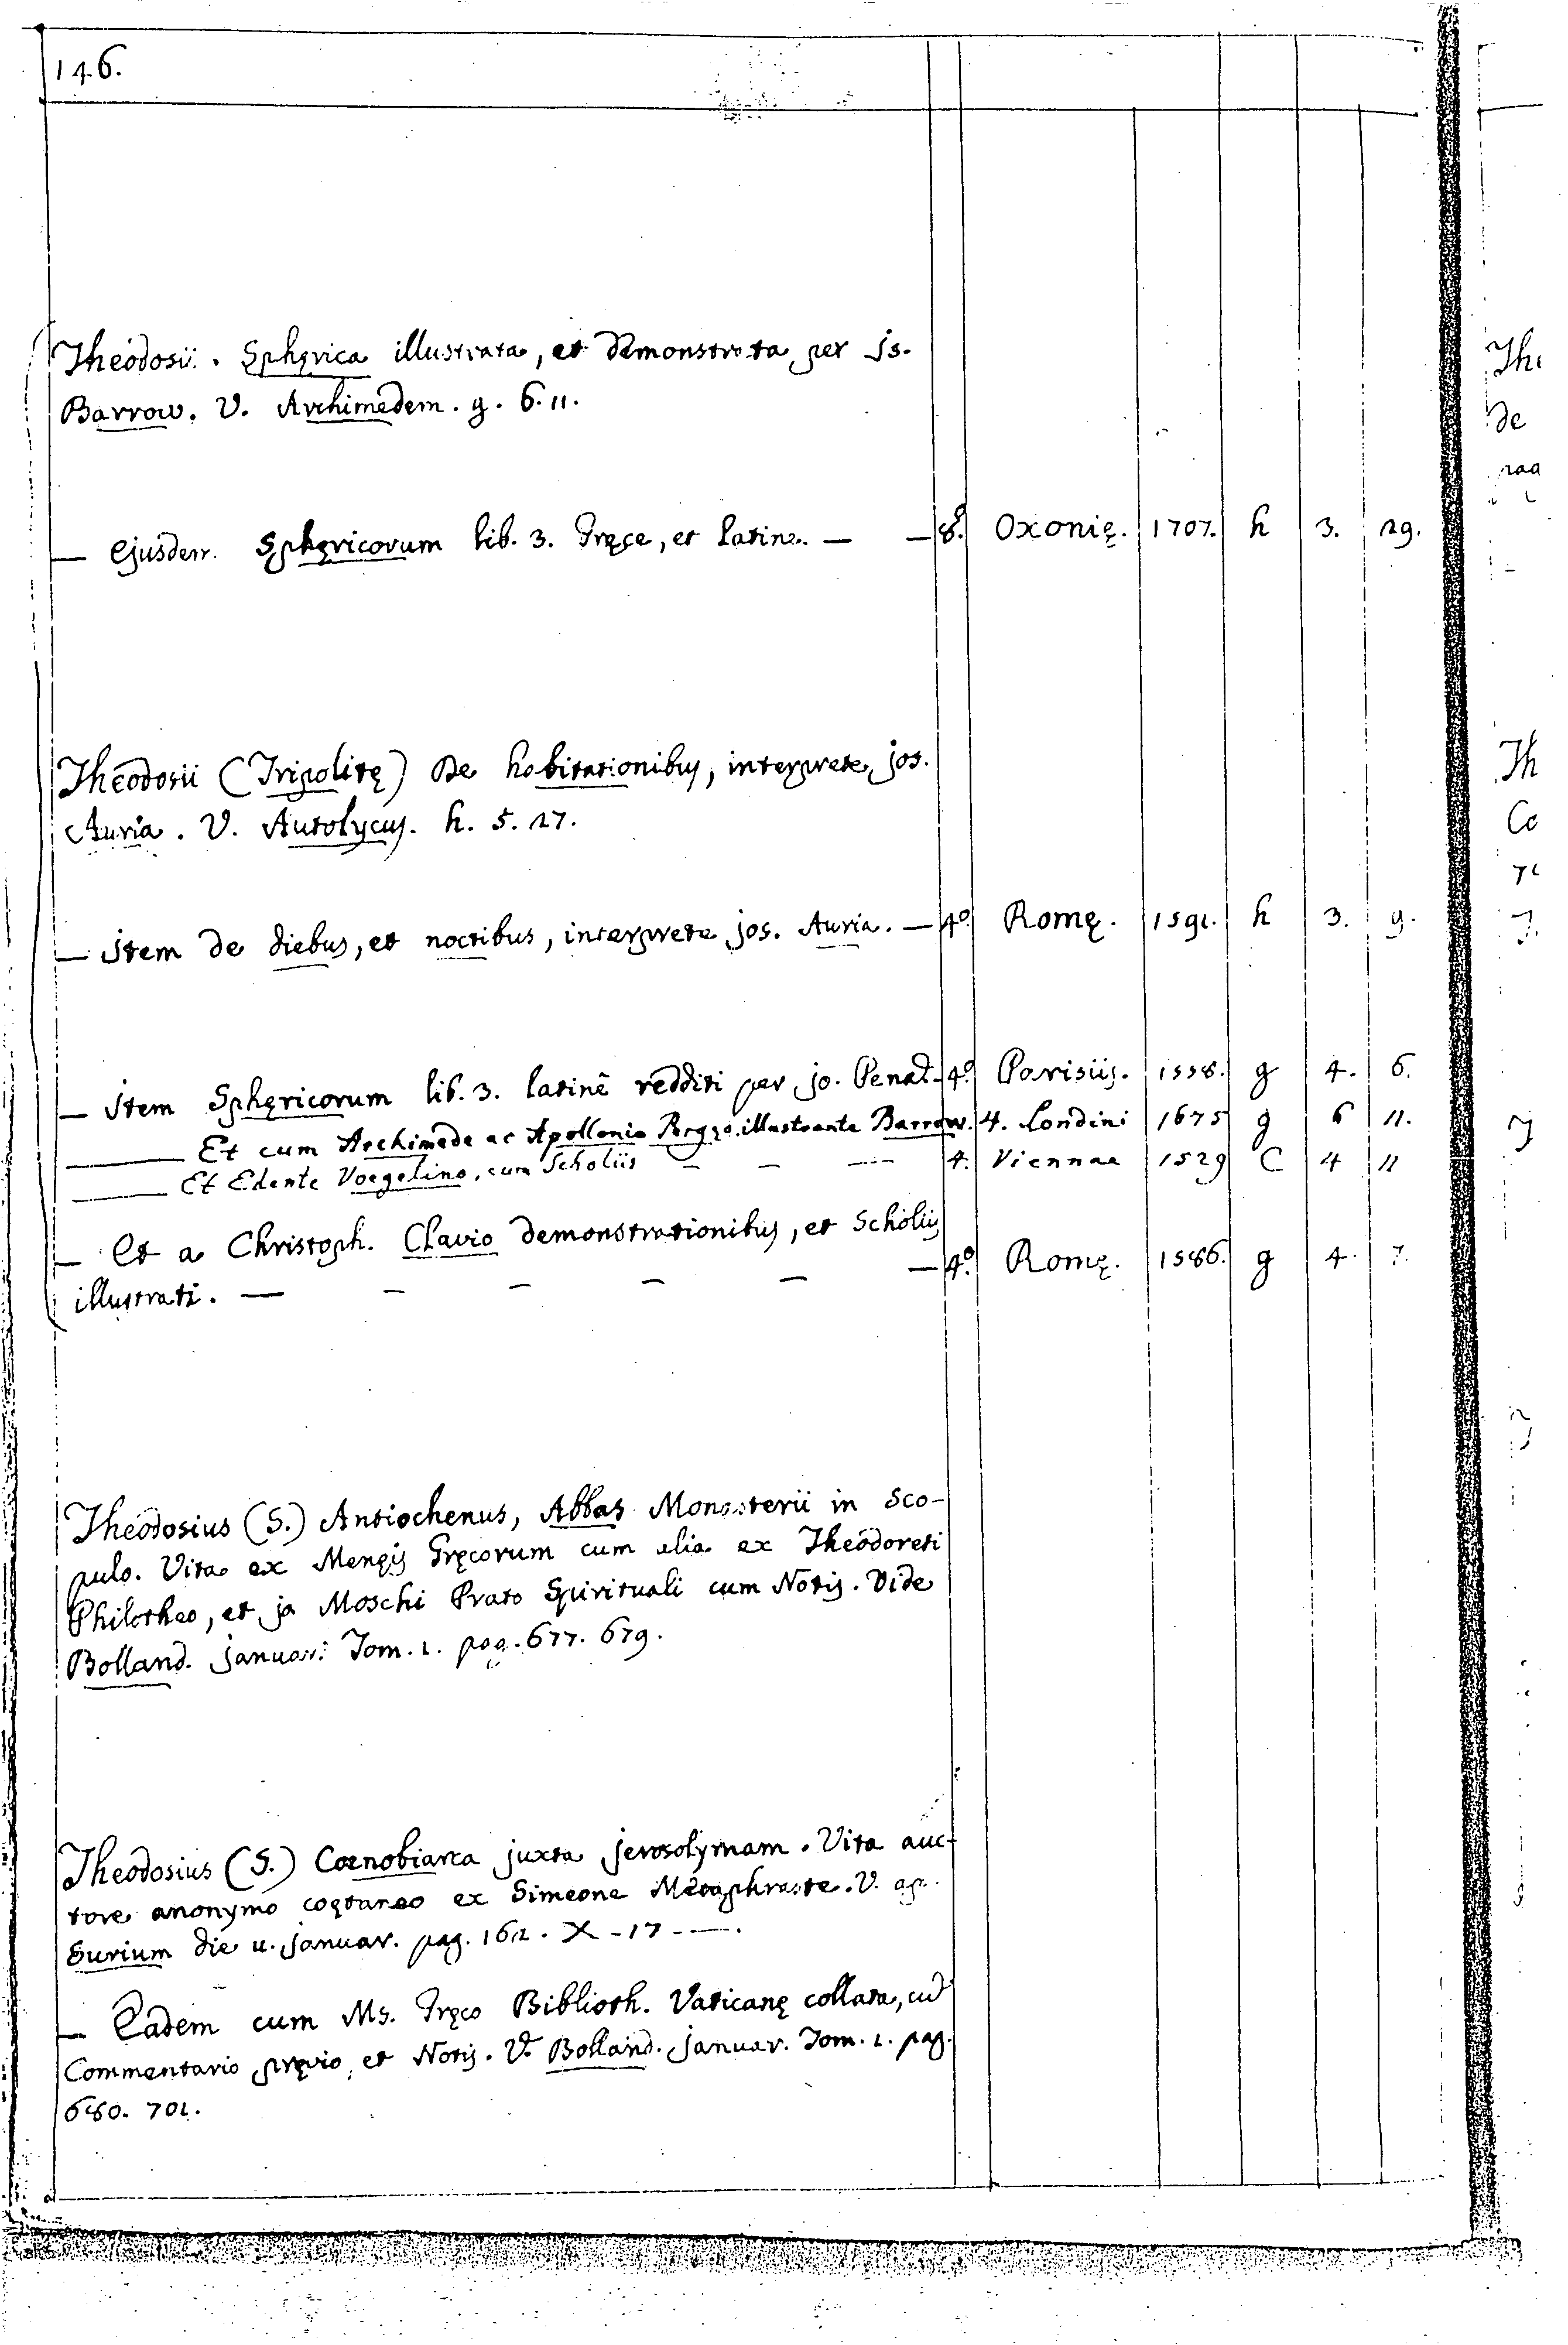 146.
Theodosii. Sphęrica illustrata, et demonstrata per Js.
Barrow. V. Archimedem. g. 6. 11.
— Ejusdem Sphęricorum lib. 3. Gręce, et Latine. — — 8.º Oxonię. 1707. h 3. 29.
Theodosii (Tripolitę) De habitationibus, interprete jos.
Auria. V. Autolycus. h. 5. 27.
— Item de diebus, et noctibus, interprete jos. Auria. — 4º Romę. 1591. h 3. 9.
— Item Sphęricorum lib. 3. latinè redditi per jo. Penat. 4º Parisiis. 1558. g 4. 6.
— Et cum Archimede ac Apollonio Pergęo illustrante Barrow. 4. Londini 1675 g 6 11.
— Et Edente Voegelino, cum Scholiis — — — 4. Viennae 1529 C 4 11
— Et a Christoph. Clavio demonstrationibus, et Scholiis
illustrati. — — — — — — 4º Romę. 1586. g 4. 7.
Theodosius (S.) Antiochenus, Abbas Monasterii in Sco-
pulo. Vita ex Menęis Gręcorum cum alia ex Theodoreti
Philotheo, et jo Moschi Prato Spirituali cum Notis. Vide
Bolland. Januarii Tom. 1. pag. 677. 679.
Theodosius (S.) Cœnobiarca juxta jerosolymam. Vita auc-
tore anonymo coętaneo ex Simeone Metaphraste. V. ap.
Surium die 11. Januar. pag. 162. X - 17 - —.
— Eadem cum Ms. Gręco Biblioth. Vaticanę collata, cū
Commentario pręvio, et Notis. V. Bolland. Januar. Tom. 1. pag.
680. 701.